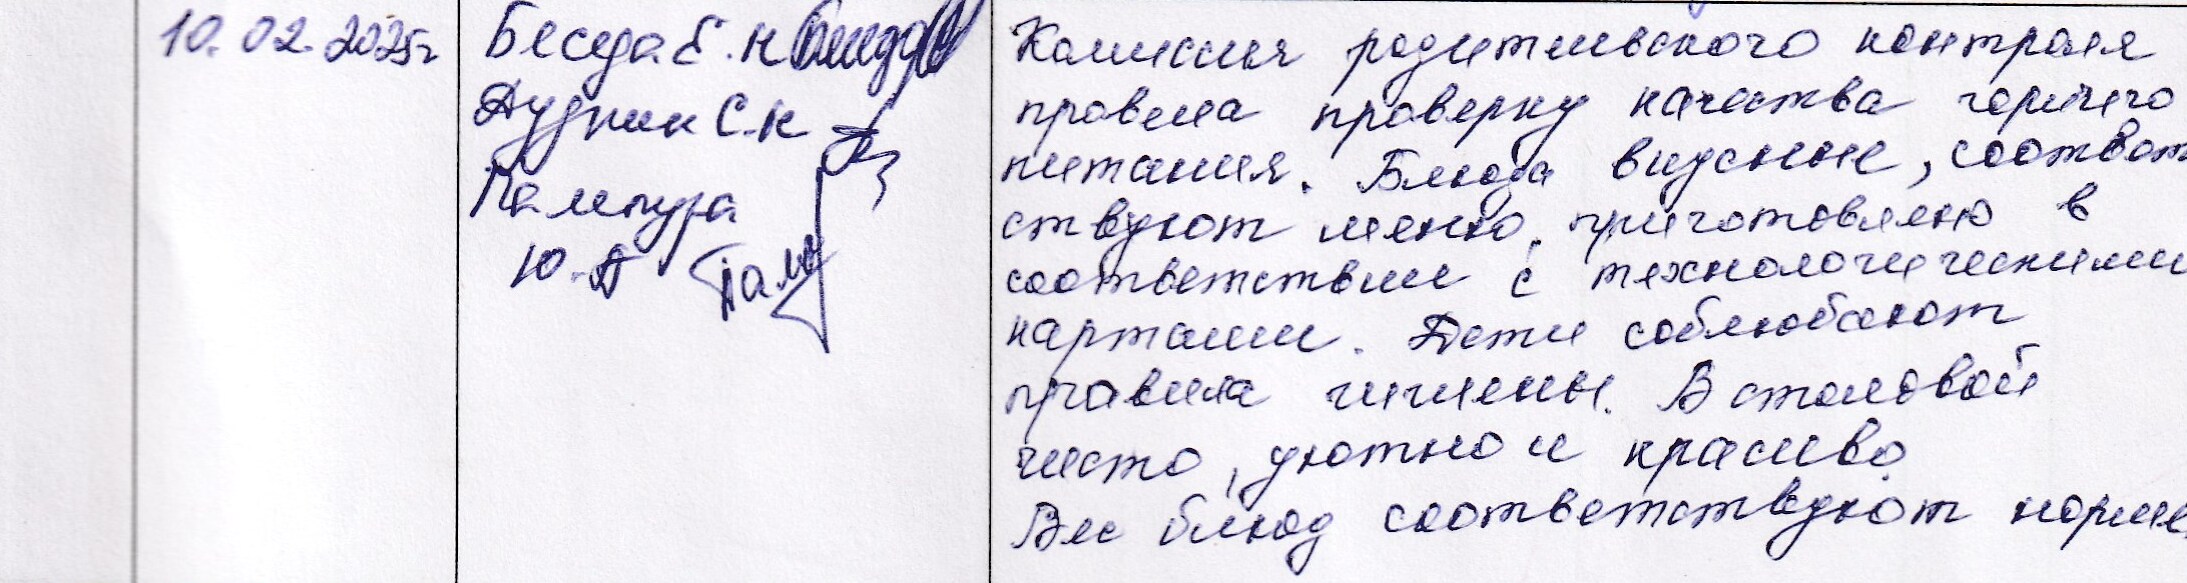 10.02.2025г
Беседа Е.Н
Дудник С.К
Палмура
Ю.А
Комиссия родительского контроля
провела проверку качества горячего
питания. Блюда вкусные, соответ
ствуют меню, приготовлено в
соответствии с технологическими
картами. Дети соблюбают
правила гигиены. В столовой
чисто, уютно и красиво
Вес блюд соответствуют норме.